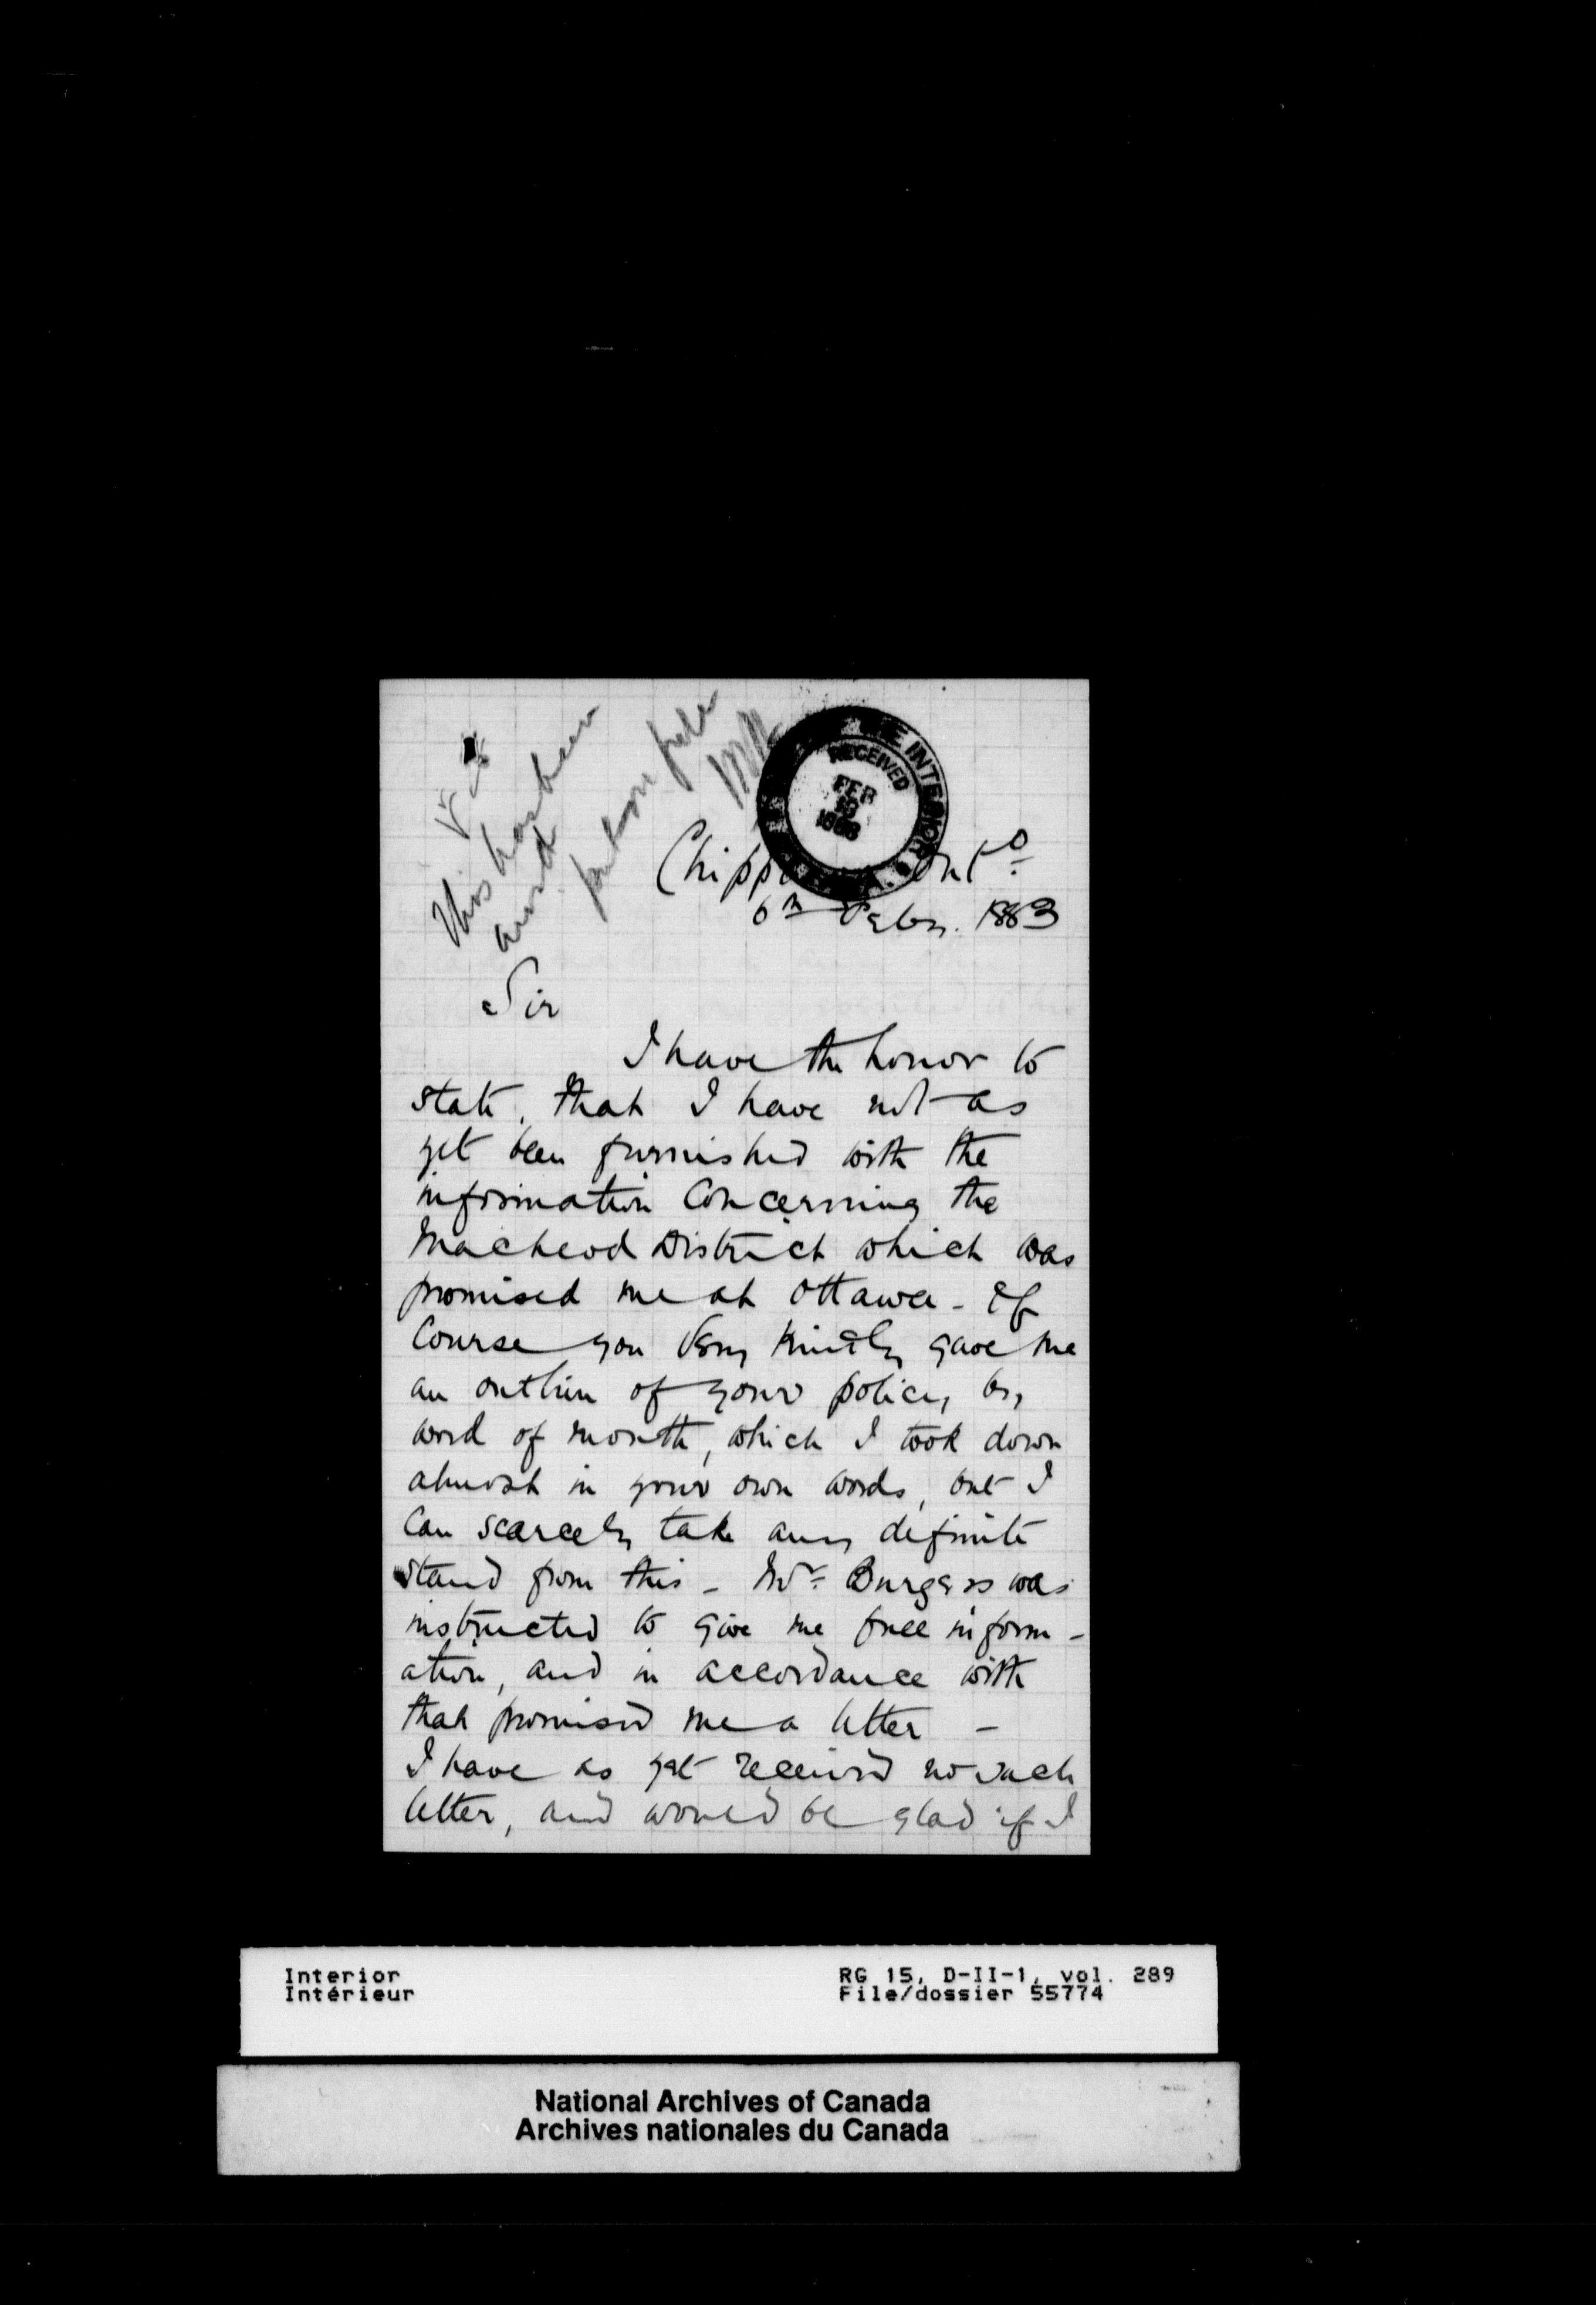 This has been
put on file
THE INTERIOR
RECEIVED
FEB
1883
Ont^o
6th Feby. 1883
Sir
I have the honor to
state, that I have not as
yet been furnished with the
information concerning the
Macleod District which was
promised me at Ottawa - Of
course you very kindly gave me
an outline of your policy, by
word of mouth, which I took down
almost in your own words, but I
can scarcely take any definite
stand from this - Mr. Burgess was
instructed to give me full inform-
ation, and in accordance with
that promised me a letter -
I have as yet received no such
letter, and would be glad if I
Interior
Intérieur
RG 15, D-II-1, vol. 289
File/dossier 55774
National Archives of Canada
Archives nationales du Canada